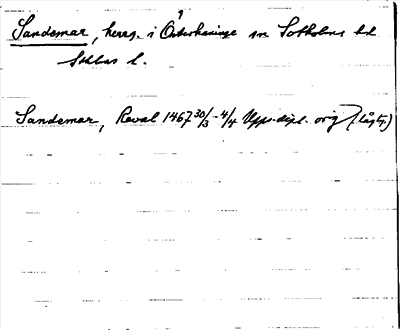 Sandemar, herrg. i Österhaninge sn Sotholms hd
Sthlms l.
Sandemar, Reval 1467 30/3 - 4/4 Upps.dipl. orig (lågty.)